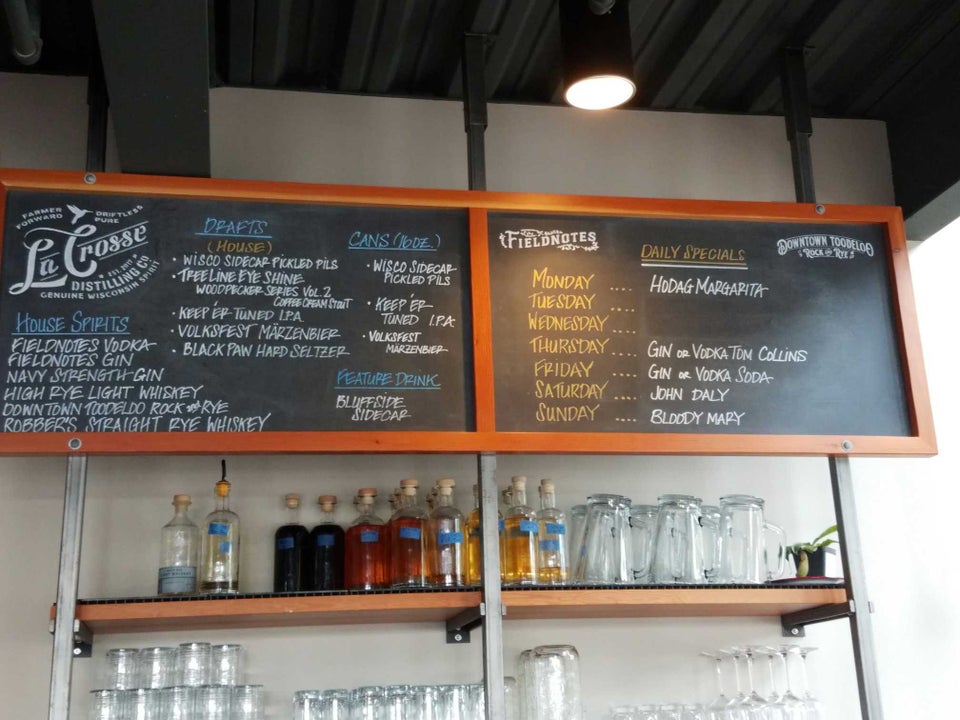 FARMER FORWARD
DRIFTLESS PURE
La Crosse
DISTILLING CO
GENUINE WISCONSIN SPIRIT
HOUSE SPIRITS
FIELDNOTES VODKA
FIELDNOTES GIN
NAVY STRENGTH GIN
HIGH RYE LIGHT WHISKEY
DOWNTOWN TOODELOO ROCK AND RYE
ROBBER'S STRAIGHT RYE WHISKEY
DRAFTS
(HOUSE)
• WISCO SIDECAR PICKLED PILS
• TREE LINE EYE SHINE
WOODPECKER SERIES VOL. 2
COFFEE CREAM STOUT
• KEEP 'ER TUNED I.P.A.
• VOLKSFEST MÄRZENBIER
• BLACK PAW HARD SELTZER
CANS (16 OZ.)
• WISCO SIDECAR
PICKLED PILS
• KEEP 'ER
TUNED I.P.A
• VOLKSFEST
MÄRZENBIER
FEATURE DRINK
BLUFFSIDE
SIDECAR
FIELDNOTES
DAILY SPECIALS
DOWNTOWN TOODELOO
ROCK AND RYE
MONDAY .... HODAG MARGARITA
TUESDAY ....
WEDNESDAY ....
THURSDAY .... GIN OR VODKA TOM COLLINS
FRIDAY .... GIN OR VODKA SODA
SATURDAY .... JOHN DALY
SUNDAY .... BLOODY MARY